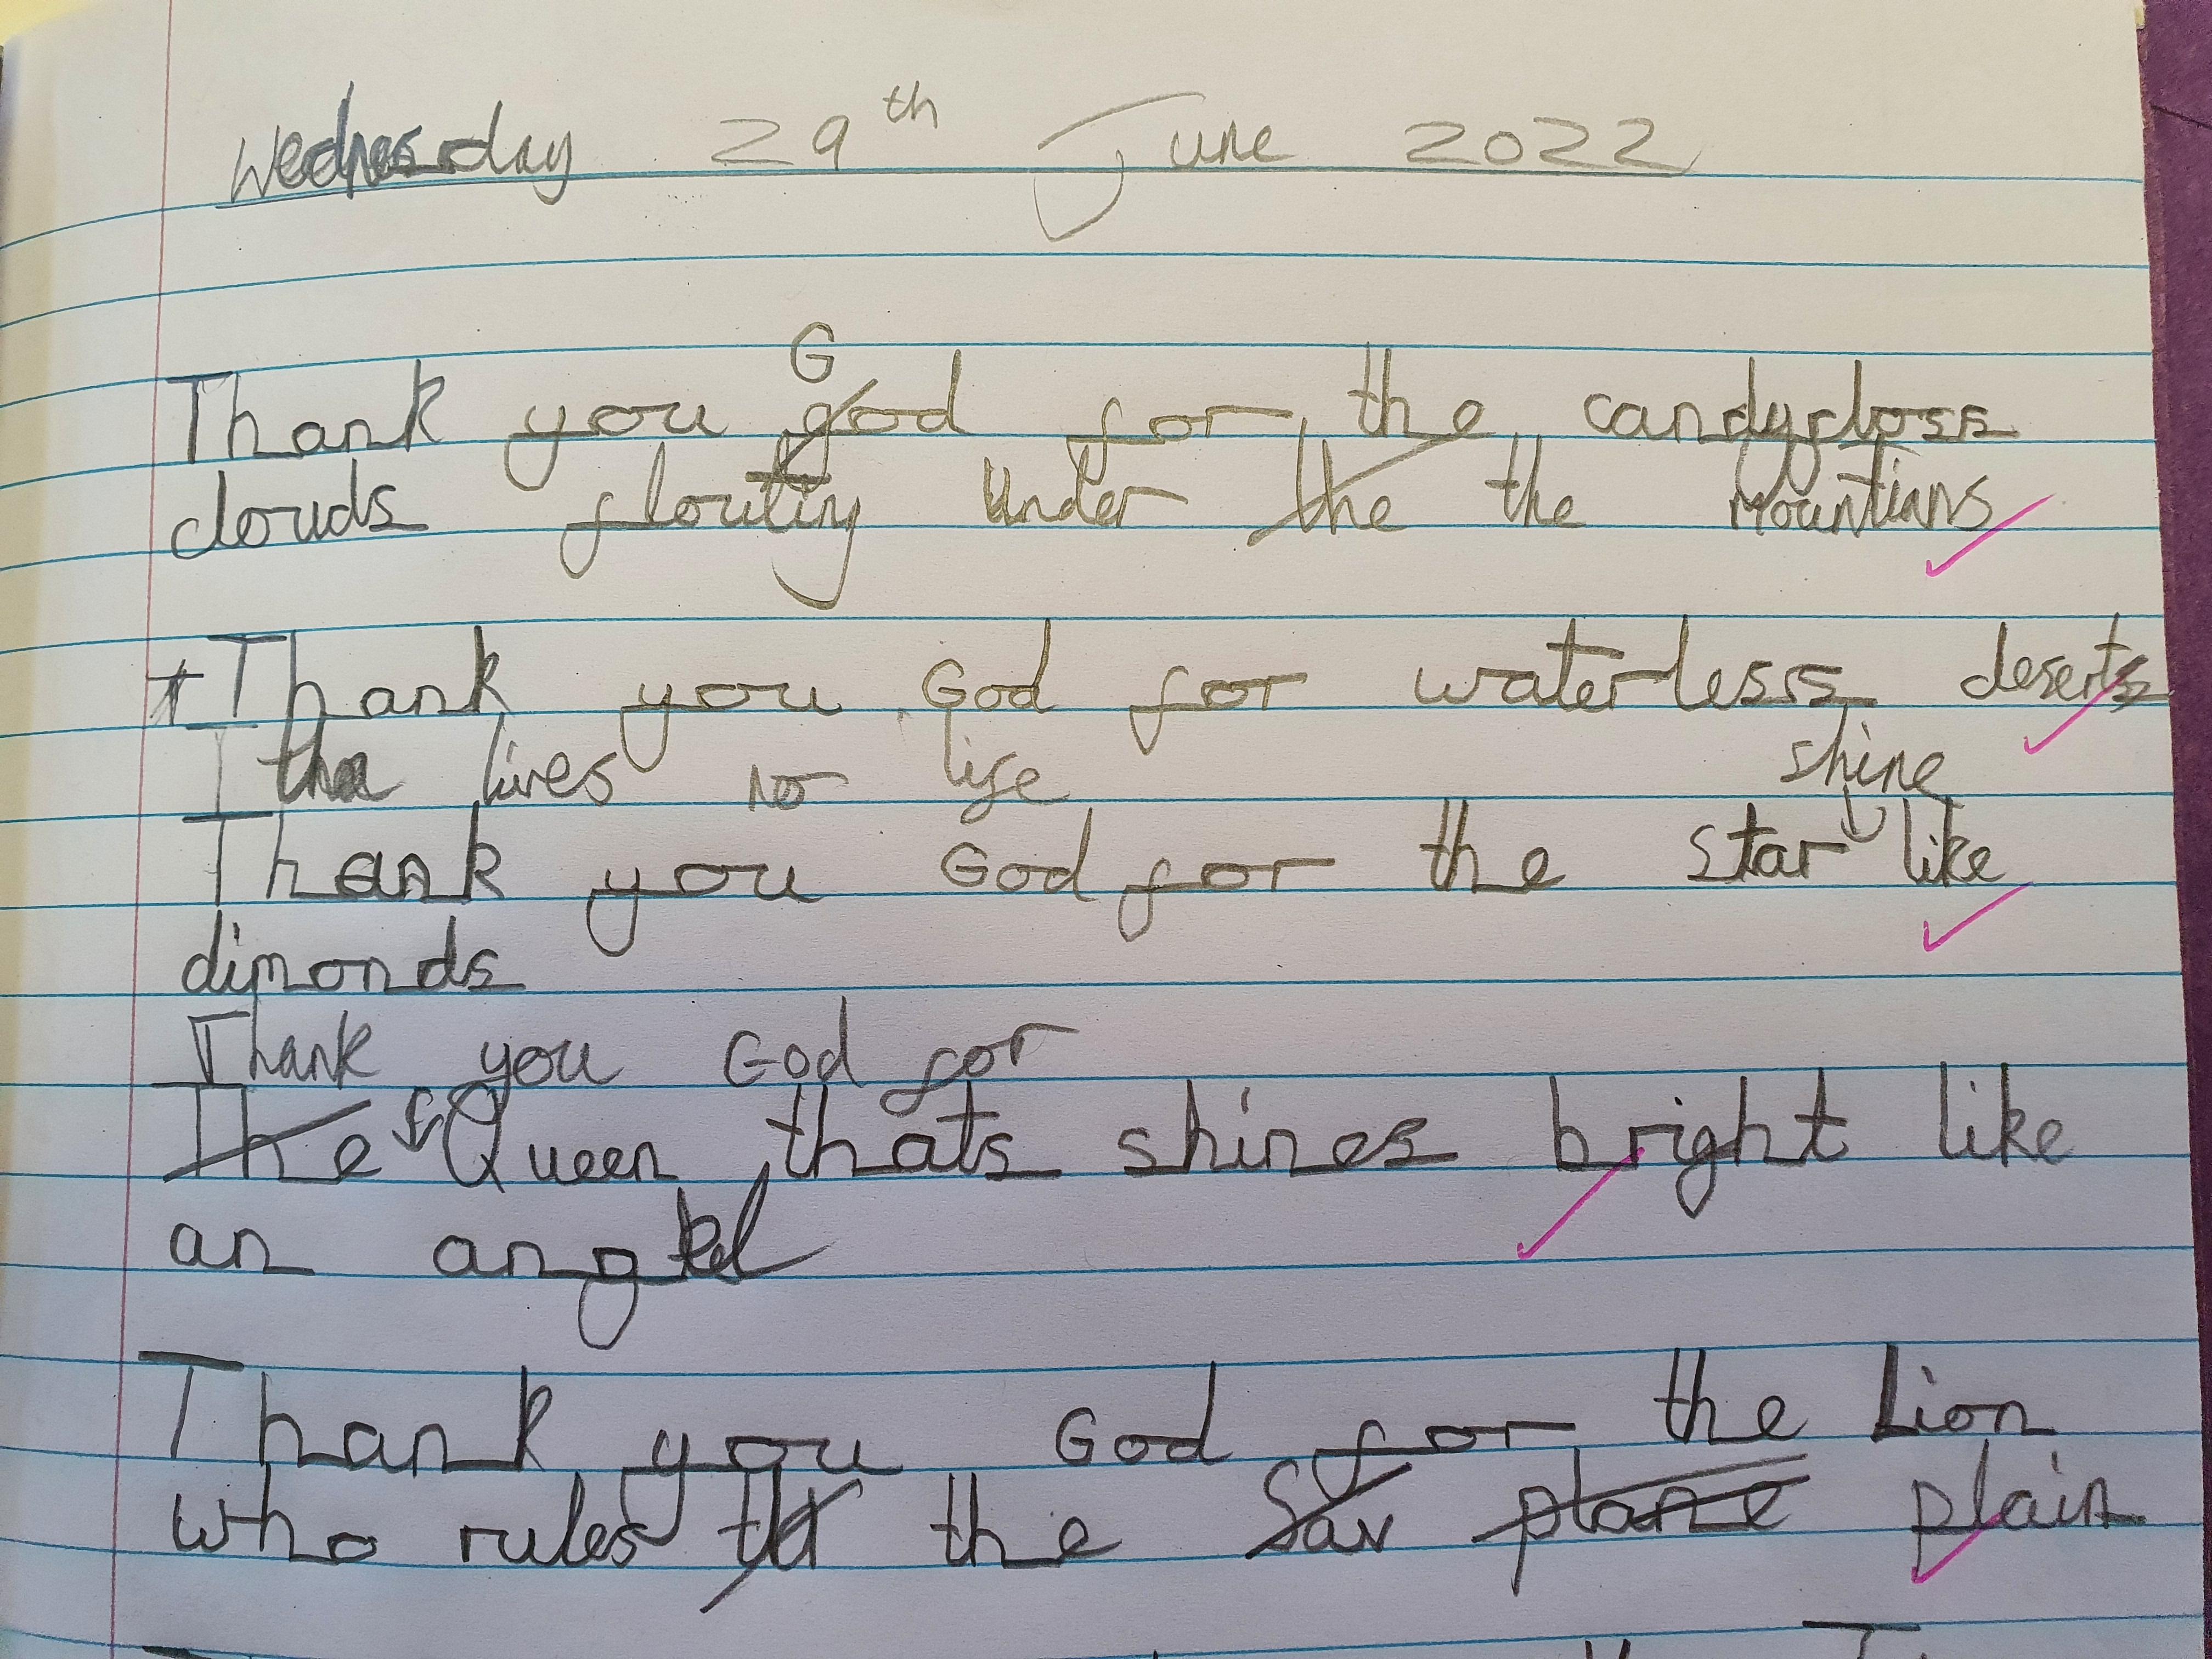 Wednesday 29th June 2022
Thank you God for the candyfloss
clouds flouting under the the Mountians
Thank you God for waterless deserts
lives no life shine
Thank you God for the star like
dimonds
Thank you God for
The Queen thats shines bright like
an angel
Thank you God for the Lion
who rules the Sav plane plain